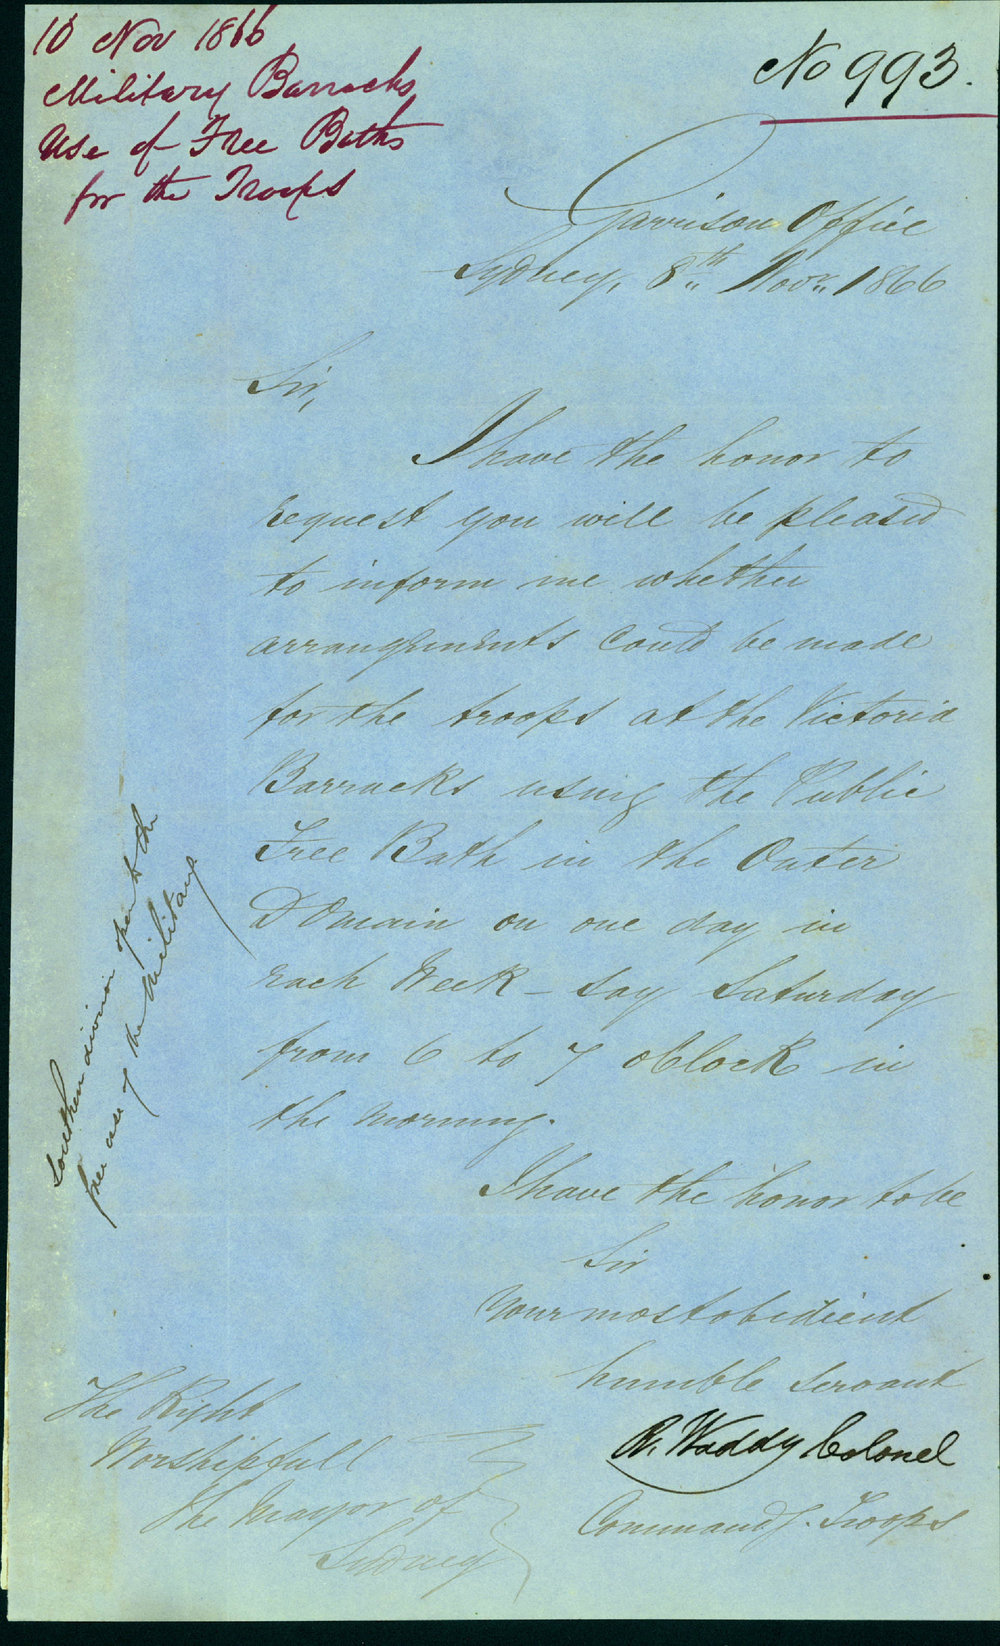 10 Nov 1866
Military Barracks
Use of Free Baths
for the Troops
No 993.
Garrison Office
Sydney, 8th Novr. 1866
Sir,
I have the honor to
request you will be pleased
to inform me whether
arrangements could be made
for the troops at the Victoria
Barracks using the Public
Free Bath in the Outer
Domain on one day in
each Week - say Saturday
from 6 to 7 oClock in
the morning.
I have the honor to be
Sir
Your most obedient
humble servant
R. Waddy Colonel
Commandg. Troops
The Right
Worshipfull
The Mayor of
Sydney
Southern division open to the
free use of the Military